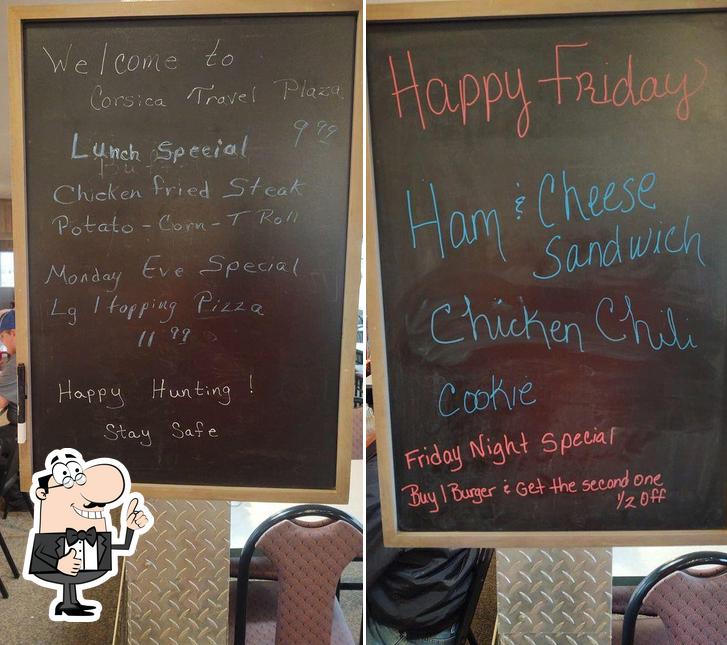 Welcome to
Corsica Travel Plaza
Lunch Special 9 99
Chicken fried Steak
Potato - Corn - T Roll
Monday Eve Special
Lg 1 topping Pizza
11 99
Happy Hunting !
Stay Safe
Happy Friday
Ham & Cheese
Sandwich
Chicken Chili
Cookie
Friday Night Special
Buy 1 Burger & Get the second one
1/2 off